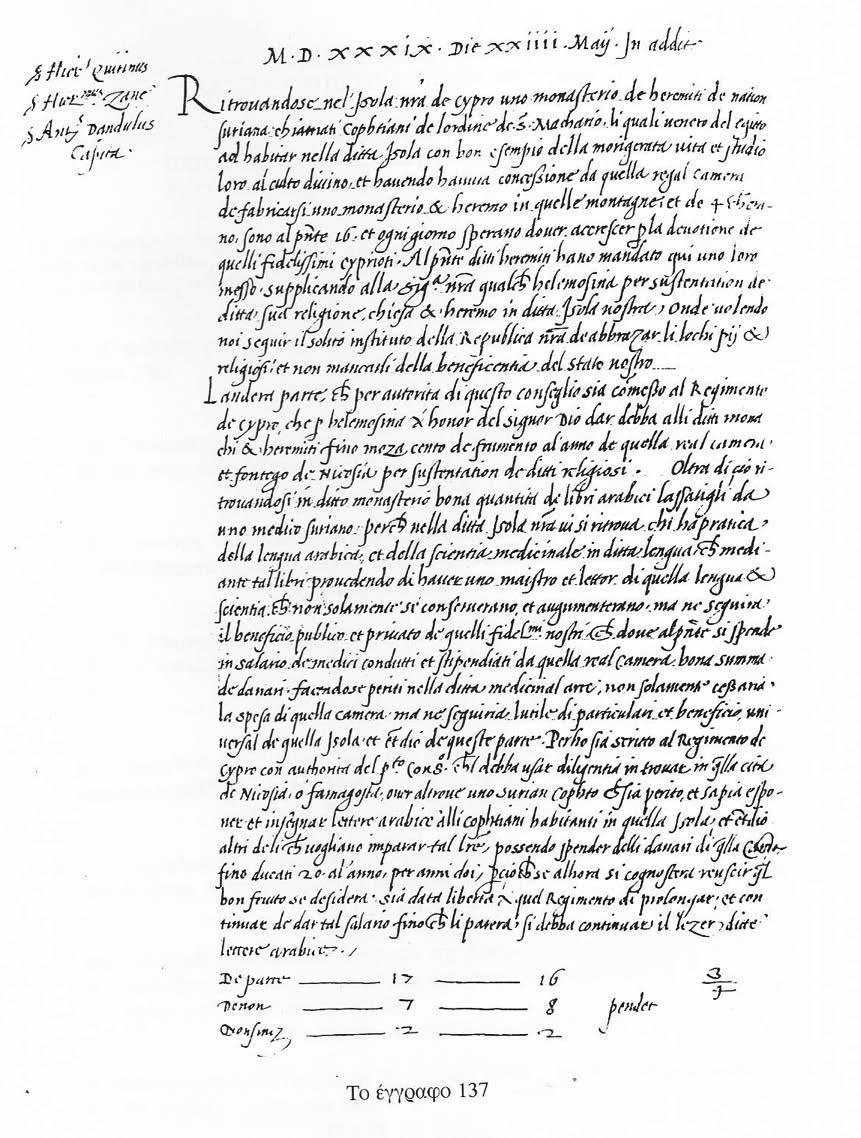 M · D · XXXIX · Die XXIIII · Maij · In addit
s Hier.s Quirinus
s Hier.mus Zane
s Ant.s Dandulus
Capita ·
Ritrovandose nel Isola nra de cypro uno monasterio de heremiti de nation
suriana chiamati Cophtiani de lordine de S. Machario. li quali venero del egitto
ad habitar nella ditta Isola con bon esempio della morigerata vita et studio
loro al culto divino, et havendo havuta concessione da quella regal camera
de fabricarsi uno monasterio & heremo in quelle montagne, et de 4 ch'era-
no, sono al pnte 16 · et ogni giorno sperano dover accrescer p la devotione de
quelli fidelissimi cyprioti. Al pnte ditti heremiti hano mandato qui uno loro
messo supplicando alla Sig.a nra qualch helemosina per sustentation de
ditta sua religione, chiesa & heremo in ditta Isola nostra, Onde volendo
noi seguir il solito instituto della Republica nra de abbrazar li lochi pij &
religiosi et non mancarli della beneficentia del stato nostro
Landera parte, ch per autorita di questo conseglio sia comesso al Regimento
de cypro, che p helemosina & honor del signor Dio dar debba alli ditti mona
chi & heremiti fino moza cento de frumento al anno de quella real camera
et fontego de Nicosia per sustentation de ditti religiosi · Oltra di cio ri-
trovandosi in ditto monasterio bona quantita de libri arabici lassatigli da
uno medico suriano: perch nella ditta Isola nra vi si ritrova chi ha pratica
della lengua arabica, et della scientia medicinale in ditta lengua, ch medi-
ante tal libri provedendo di haver uno maistro et lettor di quella lengua &
scientia, ch non solamente se conserverano, et augumenterano, ma ne seguira
il beneficio publico et privato de quelli fidel.mi nostri, ch dove al pnte si spende
in salario de medici condutti et stipendiati da quella real camera bona summa
de danari, facendose periti nella ditta medicinal arte, non solamente cessaria
la spesa di quella camera ma ne seguiria lutile di particulari et beneficio uni-
versal de quella Isola et etdio de queste parte. Perho sia scritto al Regimento de
Cypro con authorita del pto Cons.o ch'l debba usar diligentia in trovar in qlla cita
de Nicosia, o famagosta, over altrove uno surian Cophto ch sia perito, et sapia espo-
ner et insegnar lettere arabice alli cophtiani habitanti in quella Isola, et etdio
altri de li ch vogliano imparar tal lre, possendo spender delli danari di qlla
fino ducati 20 al anno, per anni doi, pcioch se alhora si cognoscera reuscir ql
bon fruto se desidera sia data liberta & quel Regimento di prolongar, et con
tinuar de dar tal salario fino ch li parera, si debba continuar il lezer ditte
lettere arabice · /
De parte 17 16 3/4
De non 7 8 pendet
Non sinc 2 2
Το έγγραφο 137